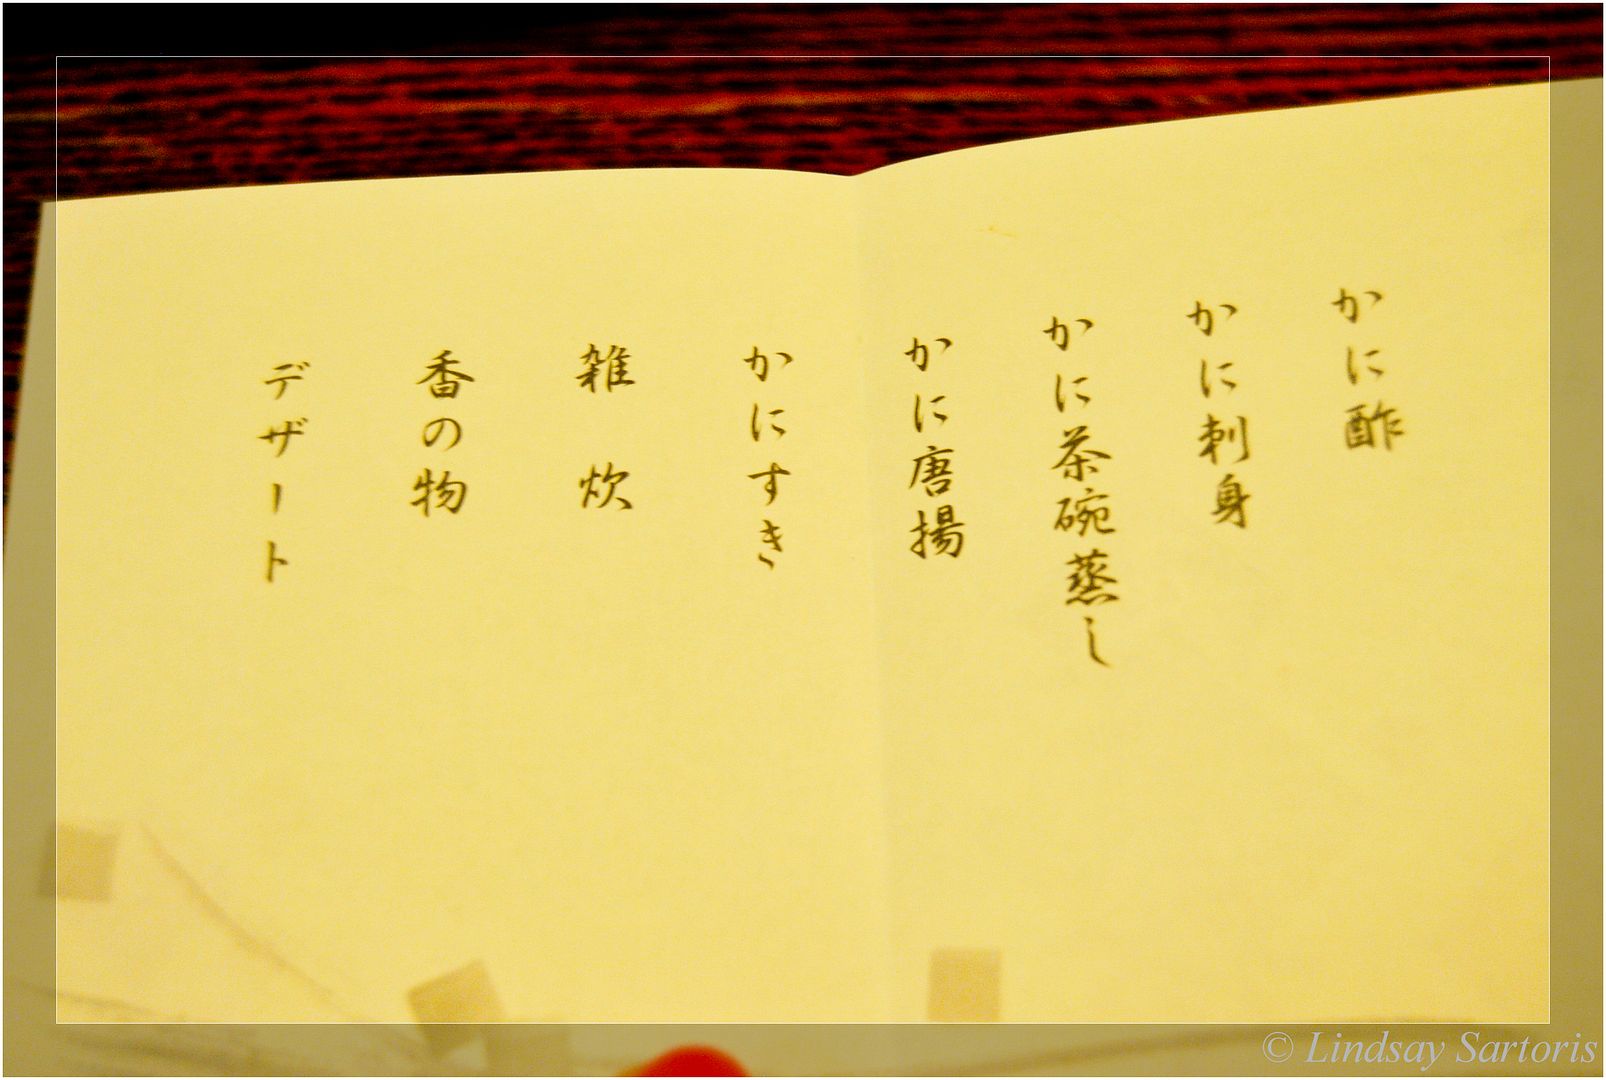 かに酢
かに刺身
かに茶碗蒸し
かに唐揚
かにすき
雑炊
香の物
デザート
© Lindsay Sartoris